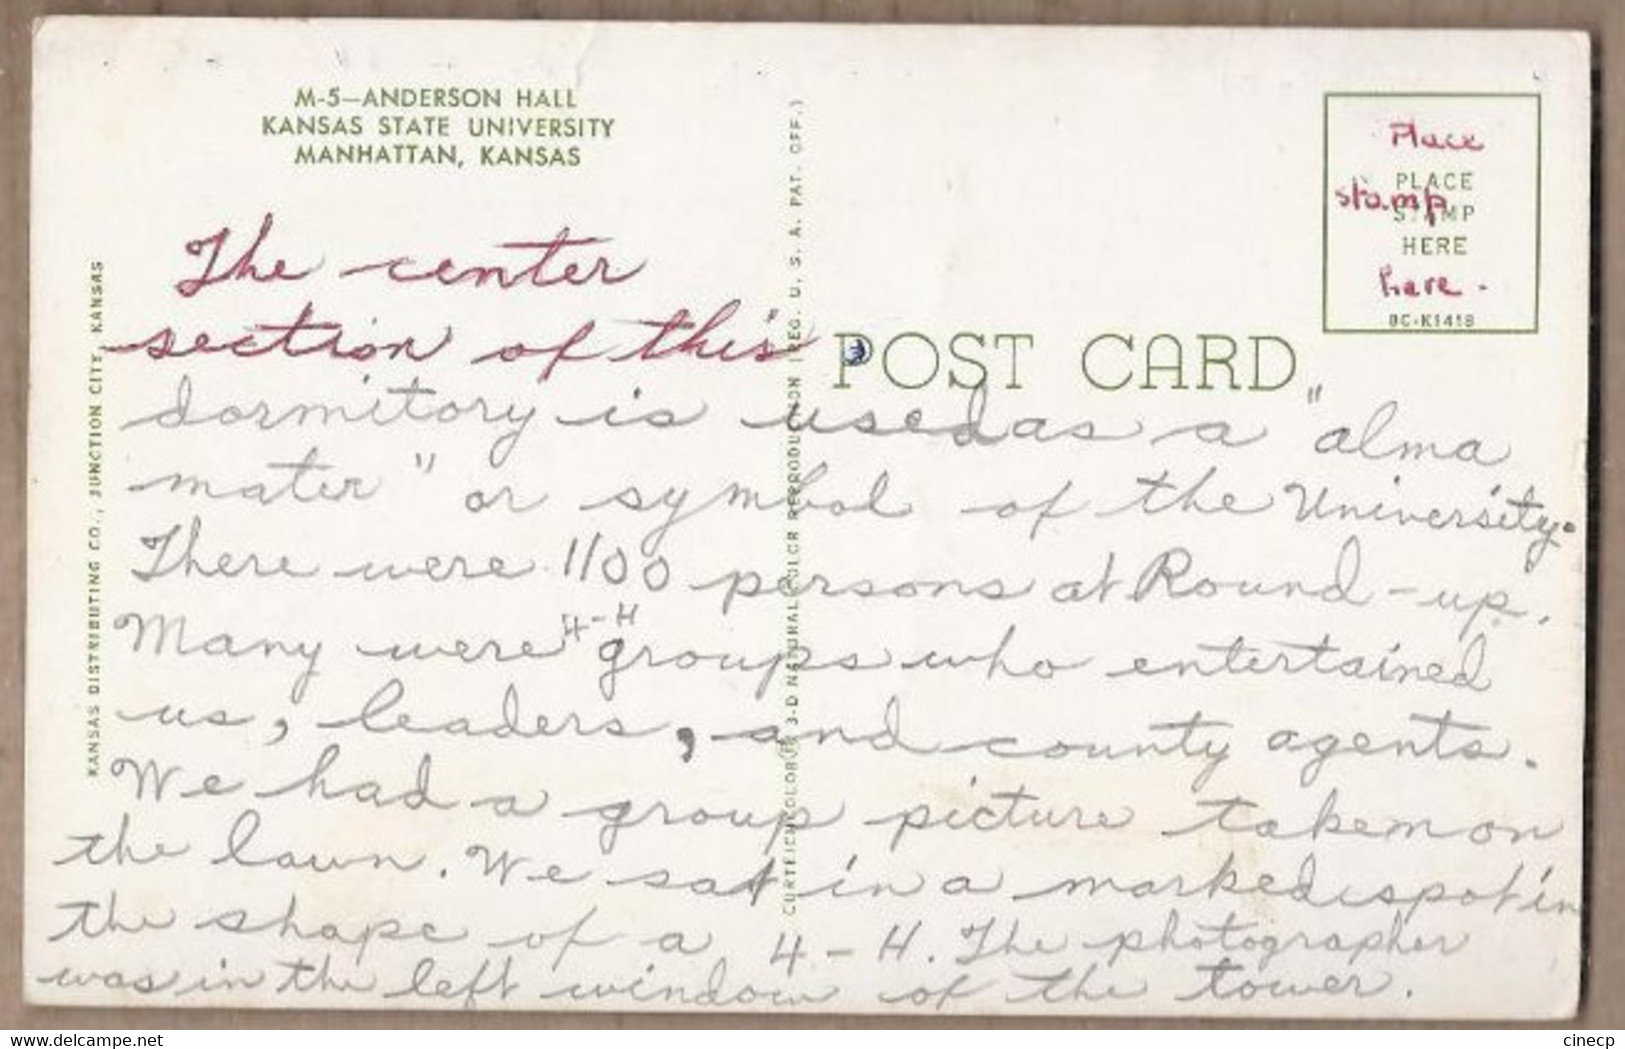 M-5—ANDERSON HALL
KANSAS STATE UNIVERSITY
MANHATTAN, KANSAS
Place
PLACE
stamp
STAMP
HERE
here.
BC-K1418
POST CARD
KANSAS DISTRIBUTING CO., JUNCTION CITY, KANSAS
CURTEICHCOLOR® 3-D NATURAL COLOR REPRODUCTION (REG. U. S. A. PAT. OFF.)
The center
section of this
dormitory is used as a "alma
mater" or symbol of the University.
There were 1100 persons at Round-up.
Many were "4-H groups who entertained
us, leaders, and county agents.
We had a group picture taken on
the lawn. We sat in a marked spot in
the shape of a 4-H. The photographer
was in the left window of the tower.
www.delcampe.net
cinecp